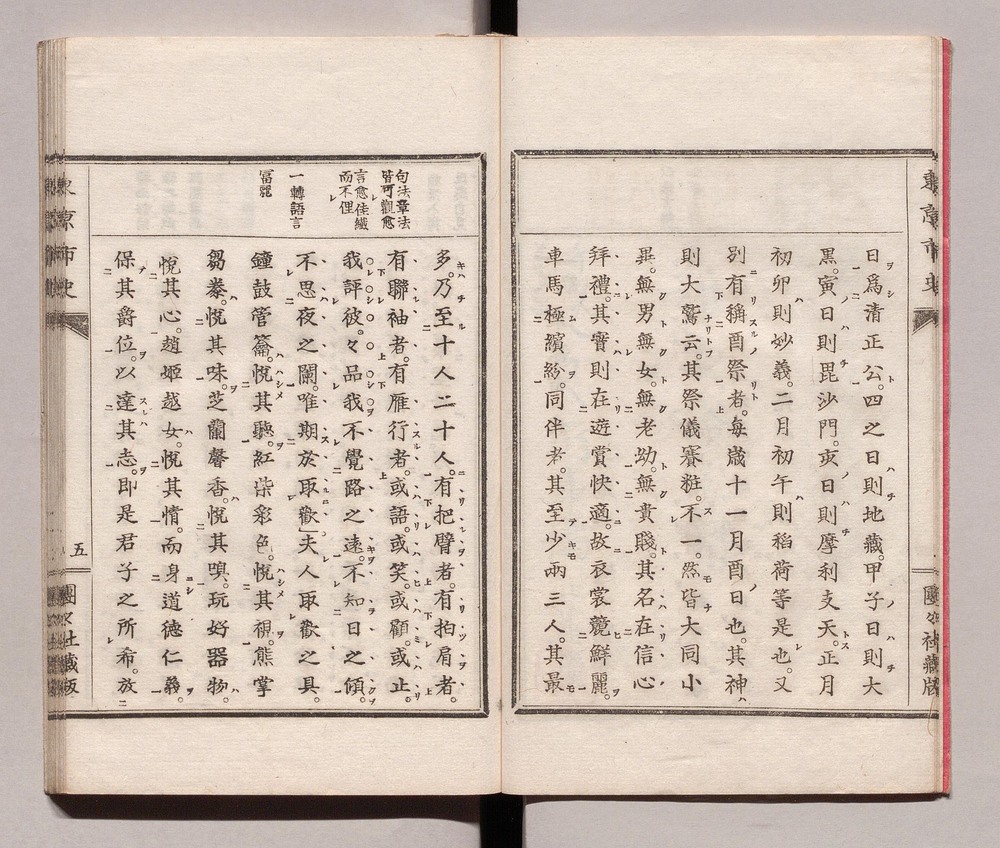 東京市史
日爲清正公。四之日則地藏。甲子日則大
黑。寅日則毘沙門。亥日則摩利支天。正月
初卯則妙義。二月初午則稻荷等是也。又
別有稱酉祭者。每歳十一月酉日也。其神
則大鷲云。其祭儀賽粧。不一。然皆大同小
異。無男無女。無老幼。無貴賤。其名在信心
拜禮。其實則在遊賞快適。故衣裳競鮮麗。
車馬極繽紛。同伴者。其至少兩三人。其最
多。乃至十人二十人。有把臂者。有拍肩者。
有聯袖者。有雁行者。或語。或笑。或顧。或止。
我評彼。々品我。不覺路之遠。不知日之傾。
不思夜之闌。唯期於取歡」夫人取歡之具。
鐘鼓管籥。悅其聽。紅柴彩色。悅其視。熊掌
芻豢。悅其味。芝蘭馨香。悅其嗅。玩好器物。
悅其心。趙姬越女。悅其情。而身道德仁義。
保其爵位。以達其志。卽是君子之所希。放
句法章法
皆可觀愈
言愈佳纎
而不俚
一轉語言
富麗
東京市史
五
團々社藏版